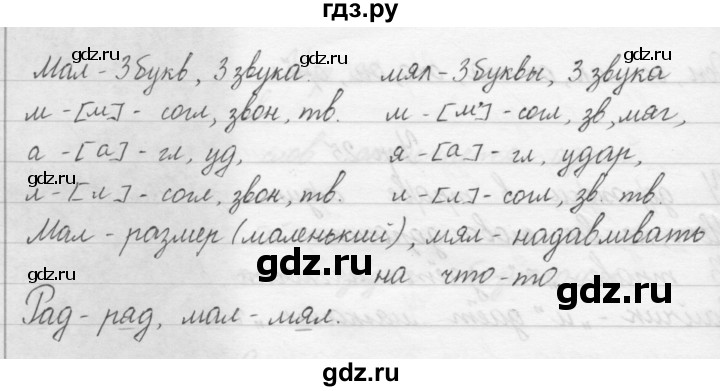 гдз.ру
gdz.ru gdz.ru
Мал - 3 букв, 3 звука мял - 3 буквы, 3 звука
м - [м] - согл, звон, тв. м - [м'] - согл, зв, мяг,
gdz.ru gdz.ru
а - [а] - гл, уд, я - [а] - гл, удар,
gdz.ru gdz.ru
л - [л] - согл, звон, тв. л - [л] - согл, зв. тв.
Мал - размер (маленький), мял - надавливать
gdz.ru gdz.ru gdz.ru
на что-то
Рад - рад, мал - мял.
gdz.ru gdz.ru
гдз.ру